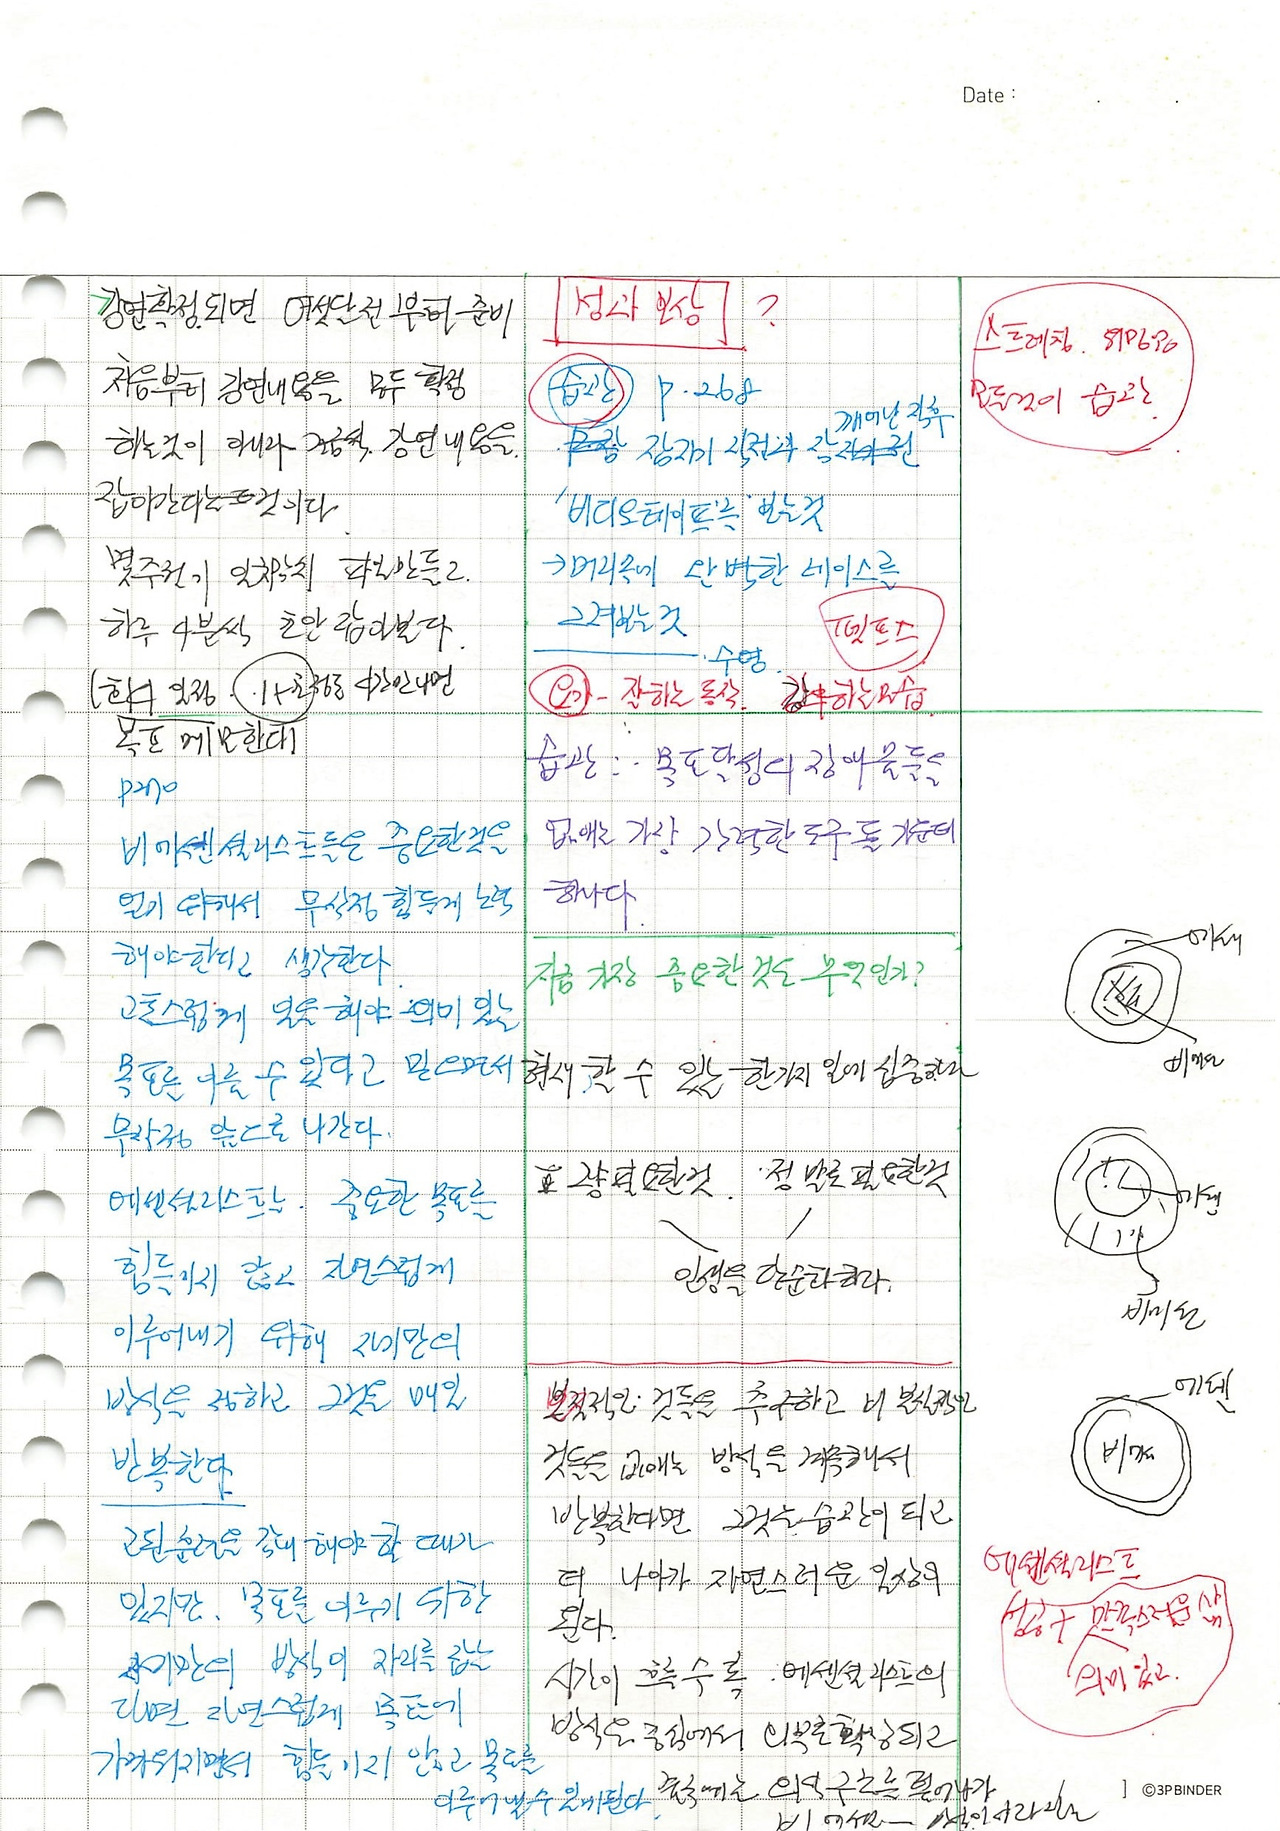 Date :
강연확정되면 여섯달전부터 준비
처음부터 강연내용을 모두 확정
하는것이 아니라 조금씩 강연내용을
잡아간다는 것이다.
몇주전기 일차적의 파일만들고
하루 4분씩 초안 잡아본다.
목표
P270
비에센셜리스트들은 중요한것을
얻기 위해서 무작정 힘들게 노력
해야한다고 생각한다.
고통스럽게 일을 해야 의미 있는
목표를 이룰 수 있다고 믿으면서
무작정 앞으로 나간다.
에센셜리스트는 중요한 목표를
힘들이지 않고 자연스럽게
이루어내기 위해 자기만의
방식을 정하고 그것을 매일
반복한다.
고된 훈련을 감내해야 할 때가
있지만, 목표를 이루기 위한
자기만의 방식이 자리를 잡는
다면 자연스럽게 목표에
가까워지면서 힘들이지 않고 목표를
이루어낼수 있게된다.
성과 보상 ?
습관 P.268
깨어난 직후
잠자기 직전과
'비디오테이프'를 보는것
머리속에 완벽한 레이스를
그려보는것
펠프스
수영.
요가 - 잘하는 동작. 하는모습
습관 : 목표달성의 장애물들을
없애는 가장 강력한 도구 들 가운데
하나다.
지금 가장 중요한 것은 무엇인가?
현재 할 수 있는 한가지 일에 집중한다
꼭 필요한것. 정말로 필요한것
인생을 단순화하라.
본질적인 것들을 추구하고 비 본질적인
것들을 없애는 방식을 계속해서
반복한다면 그것은 습관이 되고
더 나아가 자연스러운 일상이
된다.
시간이 흐를수록 에센셜리스트의
방식은 중심에서 외부로 확장되고
스트레칭.
모든것이 습관
에센
비에센
에센
비에센
에센
비에센
에센셜리스트
성공 + 만족스러운 삶
의미 있고.
©3PBINDER